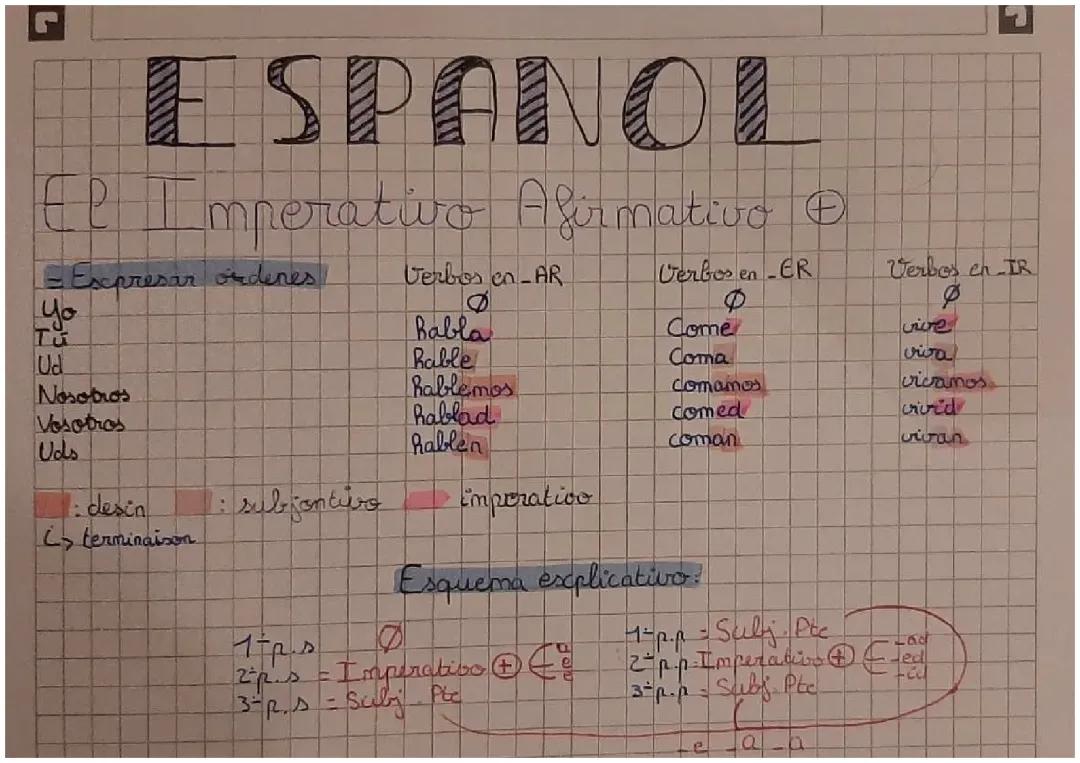 ESPANOL
El Imperativo Afirmativo +
= Expresar ordenes Verbos en -AR Verbos en -ER Verbos en -IR
Yo Ø Ø Ø
Tú habla Come vive
Ud hable Coma viva
Nosotros hablemos comamos vivamos
Vosotros hablad comed vivid
Uds hablen coman vivan
: desin : subjontivo imperativo
↳ terminaison
Esquema explicativo:
1ª p.s Ø 1ª p.p = Subj. Pte
2ª p.s = Imperativo + a e e 2ª p.p = Imperativo + -ad -ed -id
3ª p.s = Subj. Pte 3ª p.p = Subj. Pte
-e -a -a